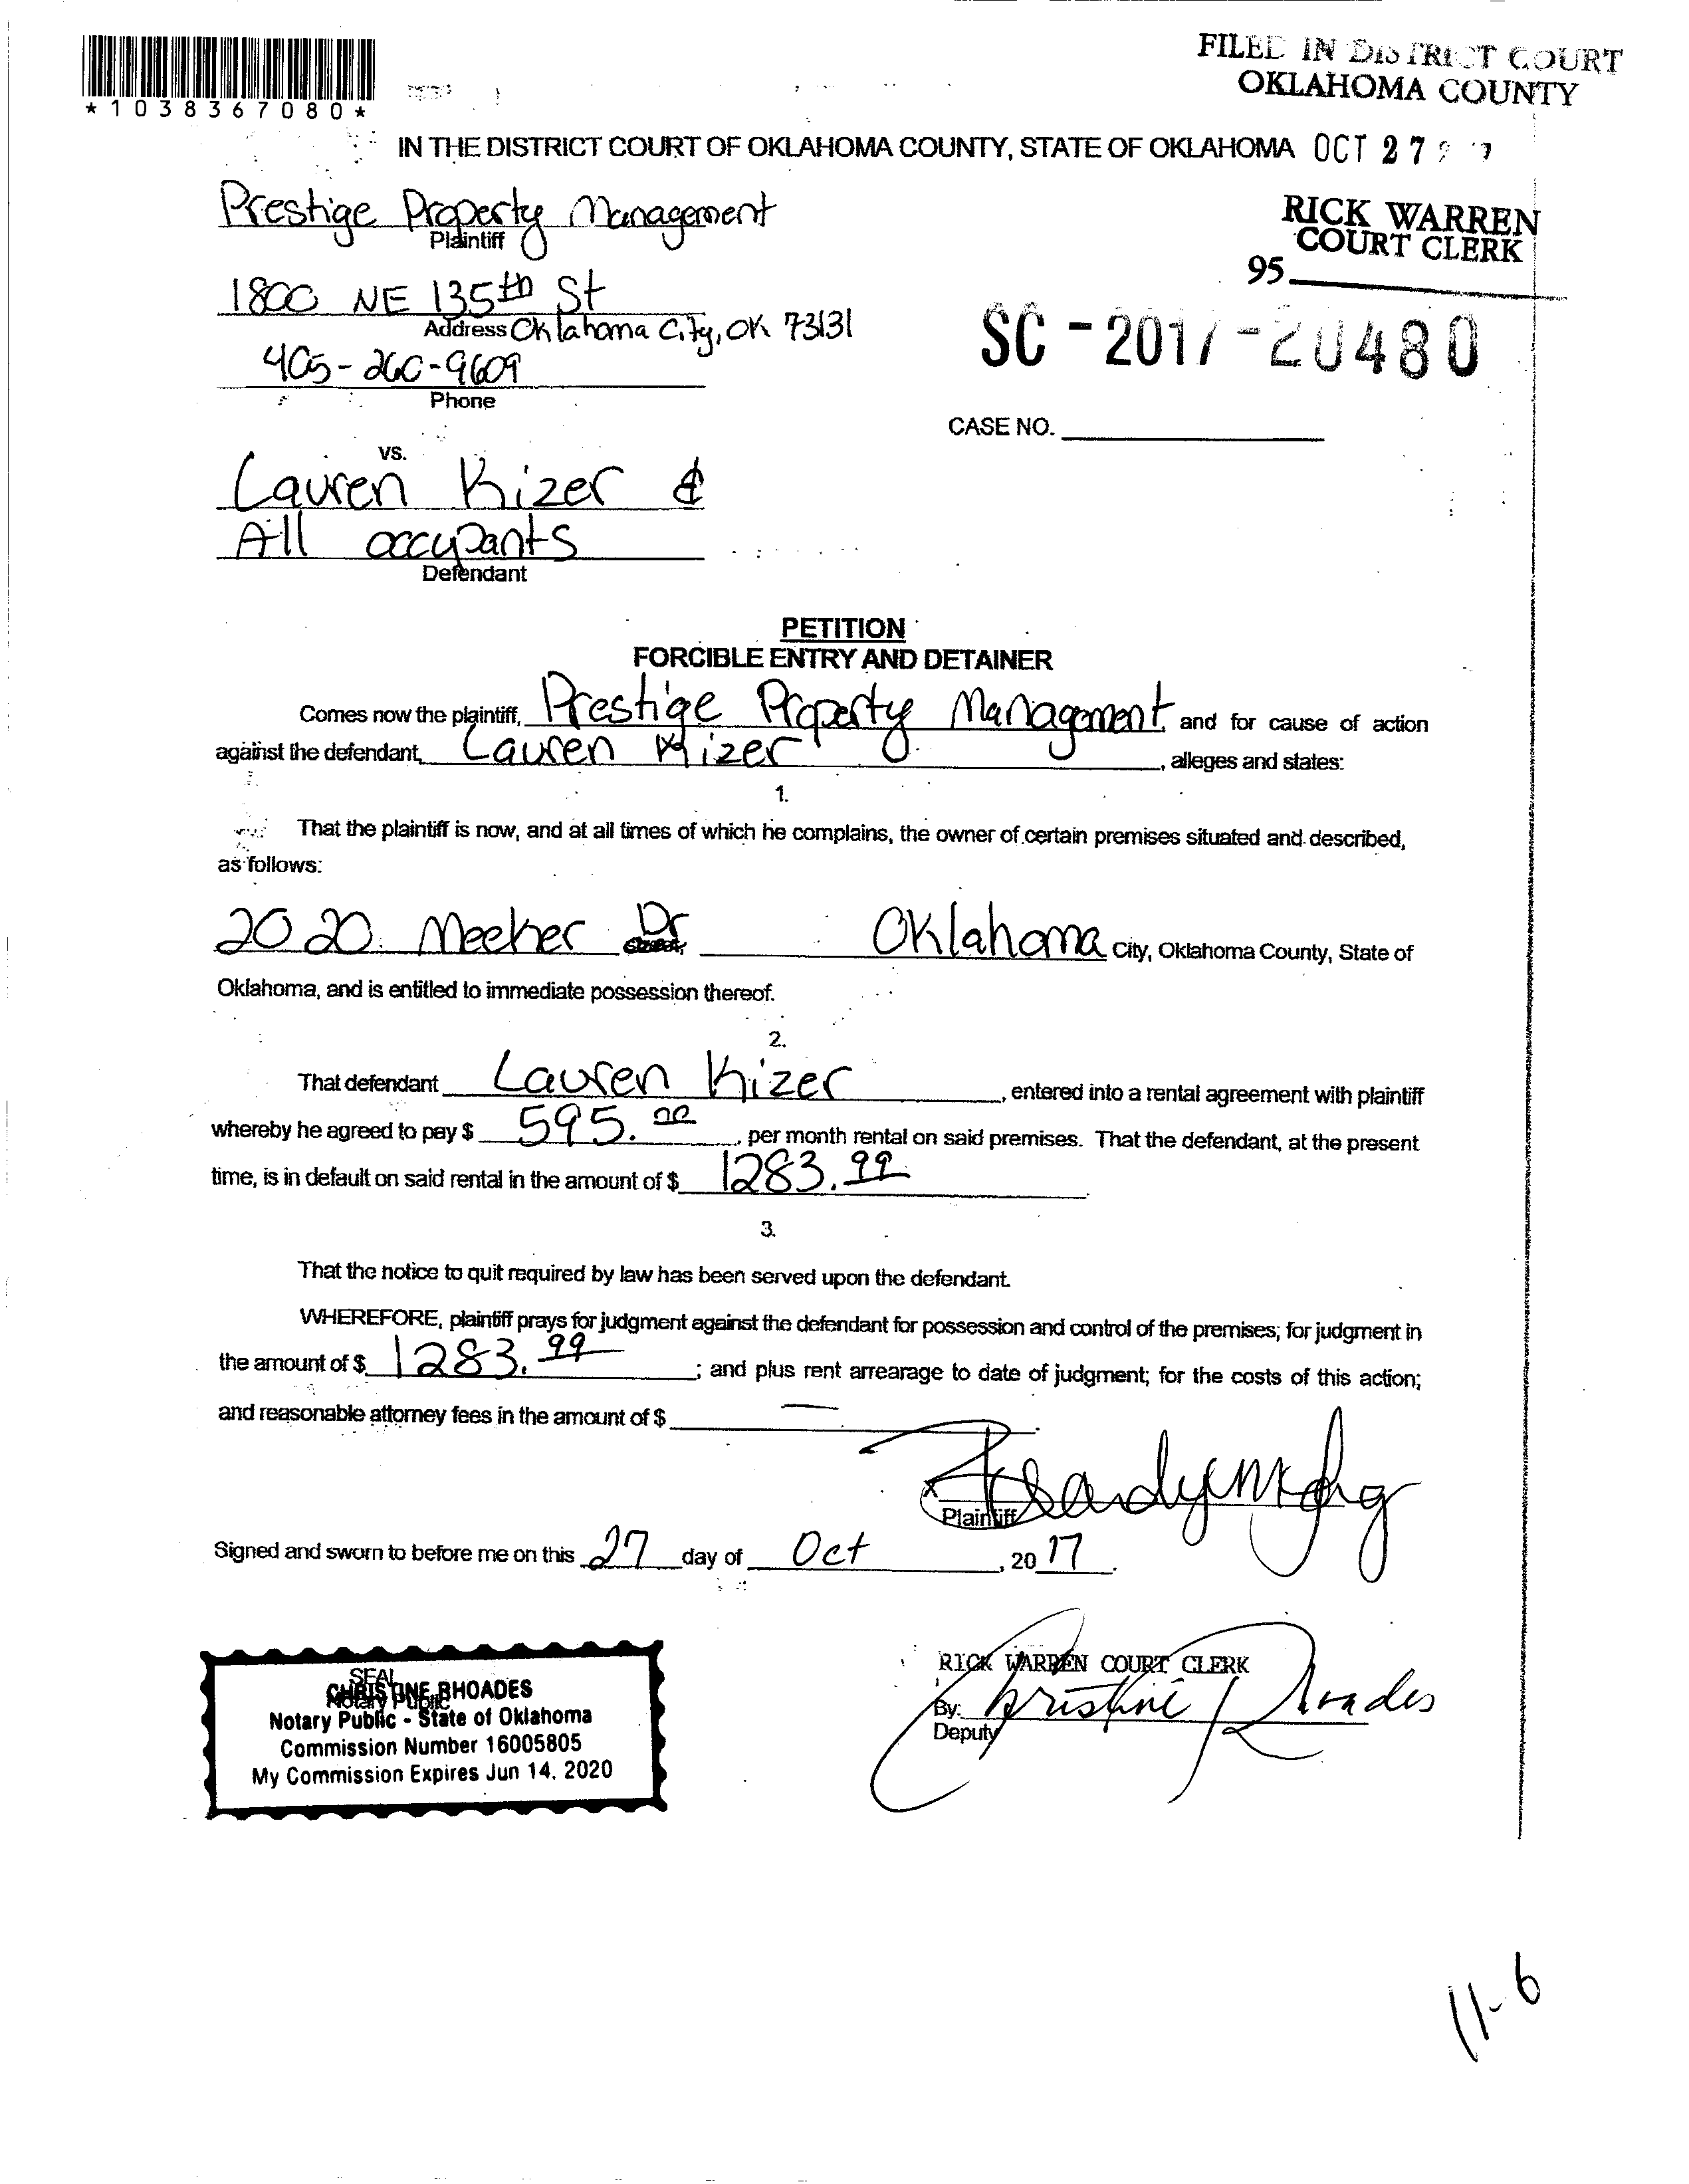 *1038367080*
FILED IN DISTRICT COURT
OKLAHOMA COUNTY
IN THE DISTRICT COURT OF OKLAHOMA COUNTY, STATE OF OKLAHOMA OCT 27
Prestige Property Management
Plaintiff
RICK WARREN
COURT CLERK
95
1800 NE 135th St
Address Oklahoma City, OK 73131
SC-2017-20480
405-260-9609
Phone
CASE NO.
vs.
Lauren Kizer &
All occupants
Defendant
PETITION
FORCIBLE ENTRY AND DETAINER
Comes now the plaintiff, Prestige Property Management, and for cause of action
against the defendant, Lauren Kizer, alleges and states:
1.
That the plaintiff is now, and at all times of which he complains, the owner of certain premises situated and described,
as follows:
2020 Meeker Dr Oklahoma City, Oklahoma County, State of
Oklahoma, and is entitled to immediate possession thereof.
2.
That defendant Lauren Kizer, entered into a rental agreement with plaintiff
whereby he agreed to pay $ 595.00, per month rental on said premises. That the defendant, at the present
time, is in default on said rental in the amount of $ 1283.99.
3.
That the notice to quit required by law has been served upon the defendant.
WHEREFORE, plaintiff prays for judgment against the defendant for possession and control of the premises; for judgment in
the amount of $ 1283.99; and plus rent arrearage to date of judgment; for the costs of this action;
and reasonable attorney fees in the amount of $ —.
x
Plaintiff
Signed and sworn to before me on this 27 day of Oct, 2017.
SEAL
CHRISTINE RHOADES
Notary Public
Notary Public - State of Oklahoma
Commission Number 16005805
My Commission Expires Jun 14, 2020
RICK WARREN COURT CLERK
By: Christine Rhoades
Deputy
11-6